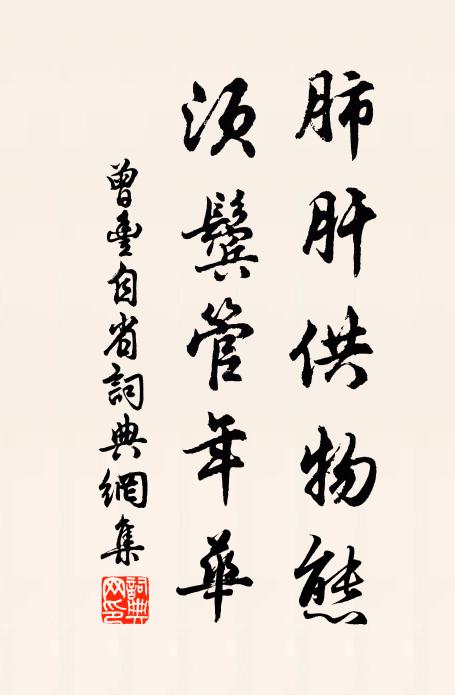 肺肝供物態
須鬢管年華
曾豐自省詞典網集
詞典網印